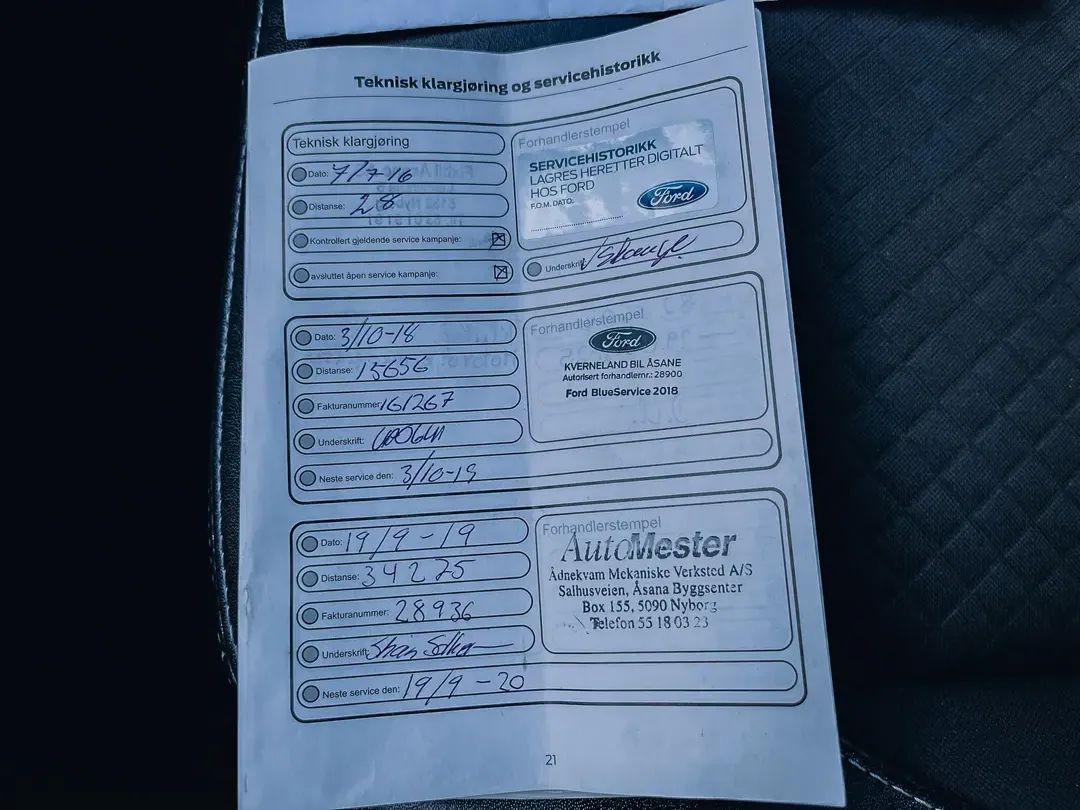 Teknisk klargjøring og servicehistorikk
Teknisk klargjøring
Dato: 7/7-16
Distanse: 28
Kontrollert gjeldende service kampanje:
avsluttet åpen service kampanje:
Forhandlerstempel
SERVICEHISTORIKK
LAGRES HERETTER DIGITALT
HOS FORD
F.O.M. DATO:
Ford
Underskrift
Dato: 3/10-18
Distanse: 15656
Fakturanummer 161267
Underskrift:
Neste service den: 3/10-19
Forhandlerstempel
Ford
KVERNELAND BIL ÅSANE
Autorisert forhandlernr.: 28900
Ford BlueService 2018
Dato: 19/9-19
Distanse: 34275
Fakturanummer: 28936
Underskrift:
Neste service den: 19/9-20
Forhandlerstempel
AutoMester
Ådnekvam Mekaniske Verksted A/S
Salhusveien, Åsana Byggsenter
Box 155, 5090 Nyborg
Telefon 55 18 03 23
21